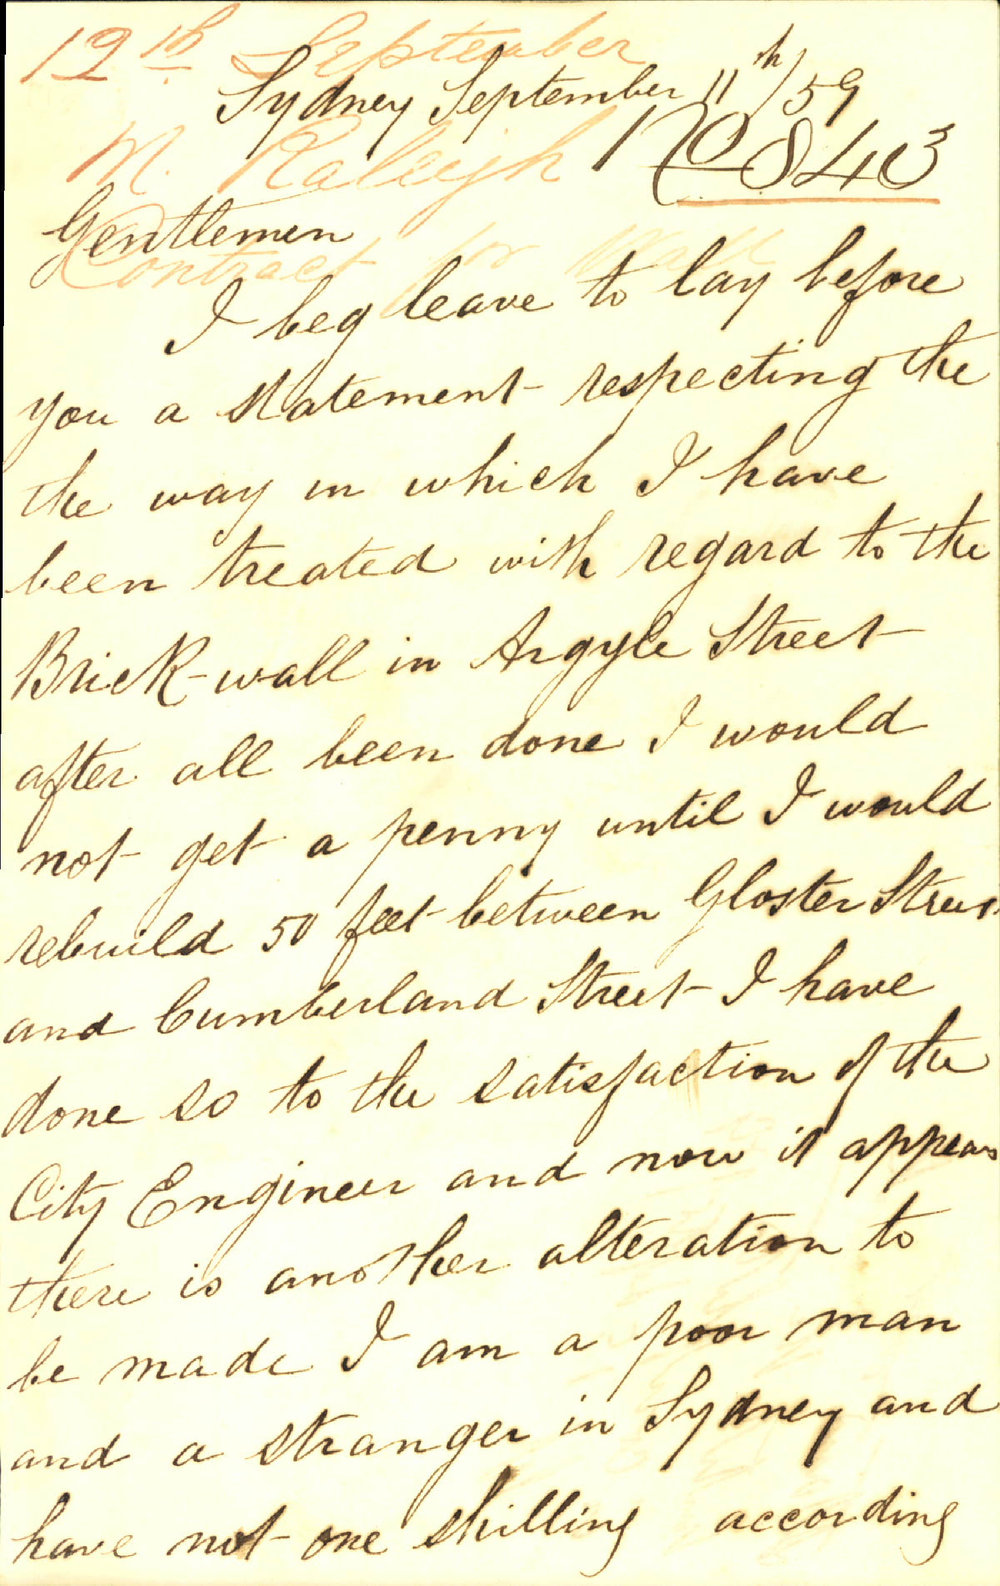 12th September
Sydney September 11th/59
M. Raleigh
No 843
Gentlemen
Contract for Wall
I beg leave to lay before
you a statement respecting the
the way in which I have
been treated with regard to the
Brick-wall in Argyle Street
after all been done I would
not get a penny until I would
rebuild 50 feet between Gloster Street
and Cumberland Street I have
done so to the satisfaction of the
City Engineer and now it appears
there is another alteration to
be made I am a poor man
and a stranger in Sydney and
have not one shilling according